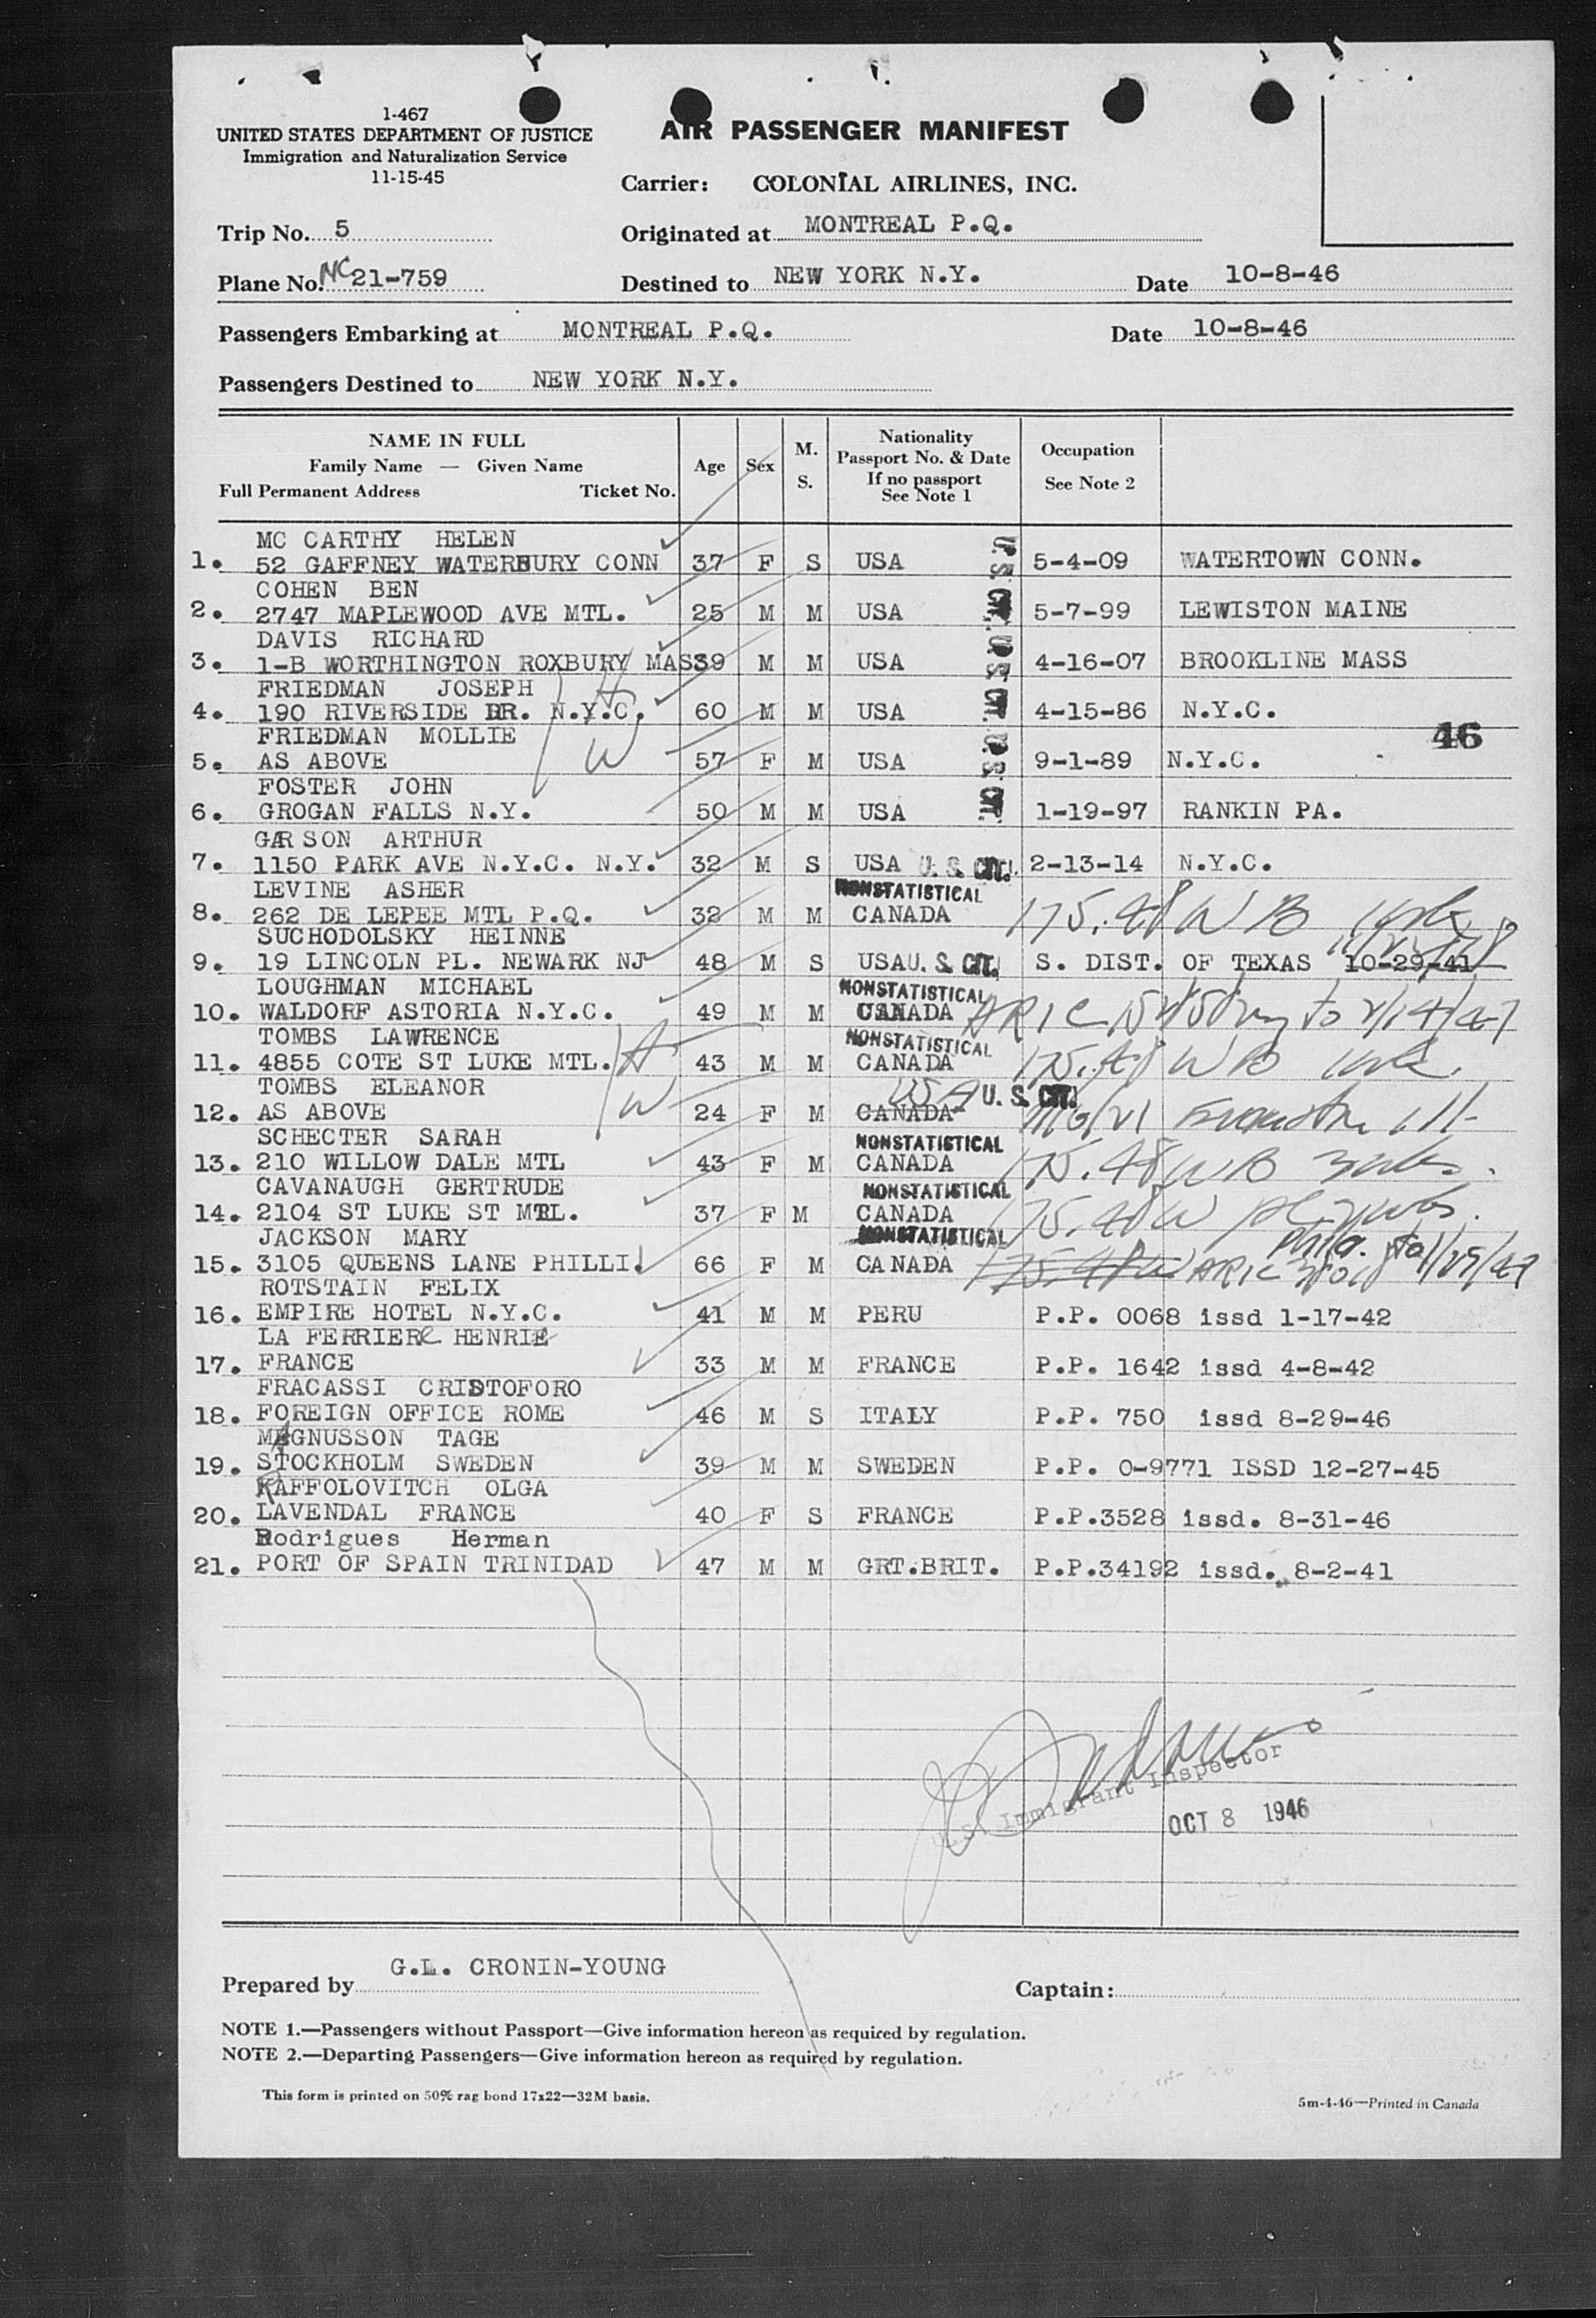 1-467
UNITED STATES DEPARTMENT OF JUSTICE
Immigration and Naturalization Service
11-15-45
AIR PASSENGER MANIFEST
Carrier: COLONIAL AIRLINES, INC.
Trip No. 5
Originated at MONTREAL P.Q.
Plane No. NC 21-759
Destined to NEW YORK N.Y. Date 10-8-46
Passengers Embarking at MONTREAL P.Q. Date 10-8-46
Passengers Destined to NEW YORK N.Y.
NAME IN FULL
Family Name — Given Name
Full Permanent Address Ticket No.
Age
Sex
M.
S.
Nationality
Passport No. & Date
If no passport
See Note 1
Occupation
See Note 2
MC CARTHY HELEN
1. 52 GAFFNEY WATERBURY CONN 37 F S USA U.S. CIT. 5-4-09 WATERTOWN CONN.
COHEN BEN
2. 2747 MAPLEWOOD AVE MTL. 25 M M USA 5-7-99 LEWISTON MAINE
DAVIS RICHARD
3. 1-B WORTHINGTON ROXBURY MASS 39 M M USA U.S. CIT. 4-16-07 BROOKLINE MASS
FRIEDMAN JOSEPH H
4. 190 RIVERSIDE DR. N.Y.C. 60 M M USA 4-15-86 N.Y.C.
46
FRIEDMAN MOLLIE W
5. AS ABOVE 57 F M USA U.S. CIT. 9-1-89 N.Y.C.
FOSTER JOHN
6. GROGAN FALLS N.Y. 50 M M USA 1-19-97 RANKIN PA.
GARSON ARTHUR
7. 1150 PARK AVE N.Y.C. N.Y. 32 M S USA U. S. CIT. 2-13-14 N.Y.C.
LEVINE ASHER NONSTATISTICAL
8. 262 DE LEPEE MTL P.Q. 32 M M CANADA 175.48 W B
SUCHODOLSKY HEINNE
9. 19 LINCOLN PL. NEWARK NJ 48 M S USA U. S. CIT. S. DIST. OF TEXAS 10-29-41
LOUGHMAN MICHAEL NONSTATISTICAL
10. WALDORF ASTORIA N.Y.C. 49 M M CANADA ARIC
TOMBS LAWRENCE NONSTATISTICAL
11. 4855 COTE ST LUKE MTL. H 43 M M CANADA 175.48 W B
TOMBS ELEANOR USA U. S. CIT.
12. AS ABOVE W 24 F M CANADA
SCHECTER SARAH NONSTATISTICAL
13. 210 WILLOW DALE MTL 43 F M CANADA 175.48 W B
CAVANAUGH GERTRUDE NONSTATISTICAL
14. 2104 ST LUKE ST MTL. 37 F M CANADA 175.48 W
JACKSON MARY NONSTATISTICAL Phila.
15. 3105 QUEENS LANE PHILLI. 66 F M CANADA 175.48 W ARIC
ROTSTAIN FELIX
16. EMPIRE HOTEL N.Y.C. 41 M M PERU P.P. 0068 issd 1-17-42
LA FERRIERE HENRIE
17. FRANCE 33 M M FRANCE P.P. 1642 issd 4-8-42
FRACASSI CRISTOFORO
18. FOREIGN OFFICE ROME 46 M S ITALY P.P. 750 issd 8-29-46
MAGNUSSON TAGE
19. STOCKHOLM SWEDEN 39 M M SWEDEN P.P. 0-9771 ISSD 12-27-45
RAFFOLOVITCH OLGA
20. LAVENDAL FRANCE 40 F S FRANCE P.P.3528 issd. 8-31-46
Rodrigues Herman
21. PORT OF SPAIN TRINIDAD 47 M M GRT.BRIT. P.P.34192 issd. 8-2-41
U.S. Immigrant Inspector
OCT 8 1946
Prepared by G.L. CRONIN-YOUNG
Captain:
NOTE 1.—Passengers without Passport—Give information hereon as required by regulation.
NOTE 2.—Departing Passengers—Give information hereon as required by regulation.
This form is printed on 50% rag bond 17x22—32M basis.
5m-4-46—Printed in Canada